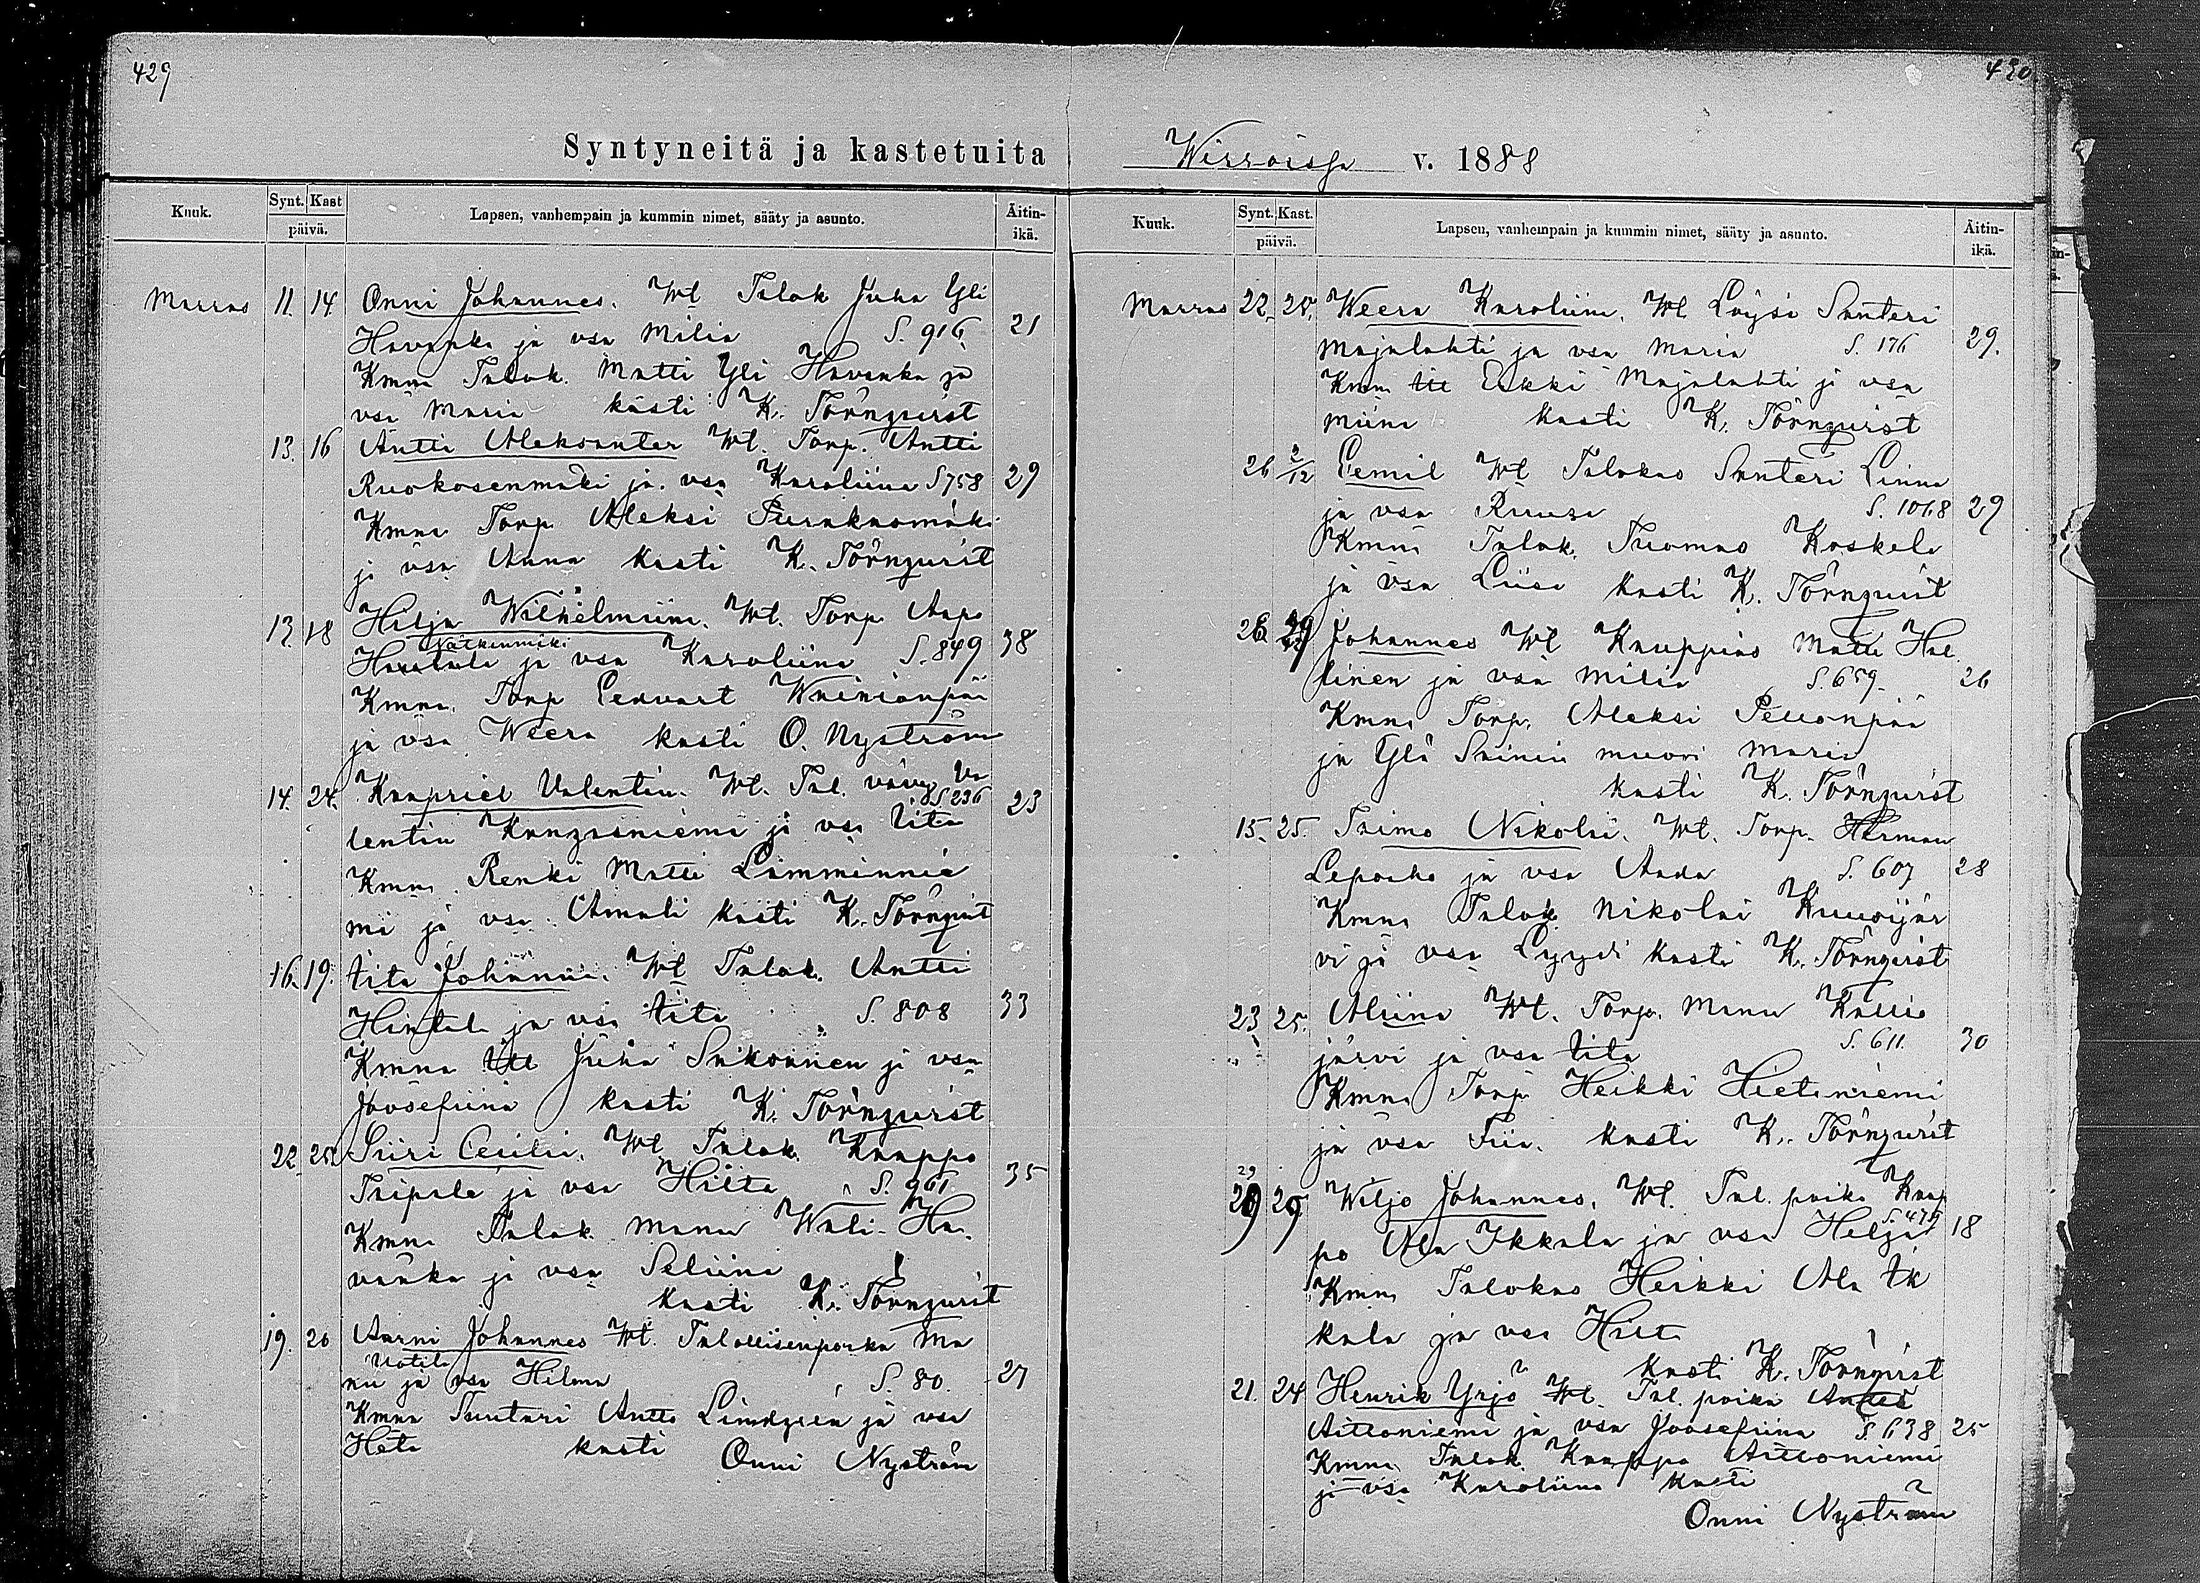 429
430
Syntyneitä ja kastetuita Wirroissa v. 1888
Kuuk. Synt. Kast päivä. Lapsen, vanhempain ja kummin nimet, sääty ja asunto. Äitin-ikä.
Marras 11. 14. Onni Johannes. Wl Talok Juha Yli
Havanka ja vsa Milia S. 916. 21
Kmna Talok. Matti Yli Havanka ja
vsa Maria kasti K. Törnqvist
13. 16 Antti Aleksanter Wl. Torp. Antti
Ruokosenmäki ja vsa Karoliina S 758 29
Kmna Torp Aleksi
ja vsa Anna kasti K. Törnqvist
13. 18 Hilja Wilhelmiina. Wl. Torp Aapo
ja vsa Karoliina S. 849 38
Kmna. Torp Eevart Wäinionpää
ja vsa Weera kasti O. Nyström
14. 24. Kaapriel Valentin. Wl. Tal. vävy Va
S 236 23
lentin ja vsa Iita
Kmna Renki Matti Lamminnie
mi ja vsa Amali kasti K. Törnqvist
16. 19. Iita Johanna. Wl Talok. Antti
ja vsa Iita S. 808 33
Kmna Itl Juha ja vsa
Joosefiina kasti K. Törnqvist
22 25. Siiri Cecilia. Wl Talok. Kaappo
Taipale ja vsa Hilta S. 961 35
Kmna Talok Manu Wäli-Ha
vanka ja vsa Seliina
kasti K. Törnqvist
19. 26 Aarni Johannes Wl. Talollisenpoika Ma
Uotila
nu ja vsa Hilma S. 80. 27
Kmna Suutari Antti Lindgrén ja vsa
Heta kasti Onni Nyström
Kuuk. Synt. Kast. päivä. Lapsen, vanhempain ja kummin nimet, sääty ja asunto. Äitin-ikä.
Marras 22. 25. Weera Karoliina. Wl Löysi Santeri
Majalahti ja vsa Maria S. 176 29.
Kmna Itl Erkki Majalahti ja vsa
Miina kasti K. Törnqvist
26 2/12 Eemil Wl Talokas Santeri Linna
ja vsa Ruusa S. 1068 29
Kmna Talok. Tuomas Koskela
ja vsa Liisa kasti K. Törnqvist
26. 29 Johannes Wl Kauppias Matti Häl
linen ja vsa Milia S. 659. 26
Kmna Torp. Aleksi Peuonpää
ja Ylä muori Maria
kasti K. Törnqvist
15. 25. Taimo Nikolai. Wl. Torp. Herman
Lepoaho ja vsa Aada S. 607 28
Kmna Talok Nikolai Kuusijär
vi ja vsa Lyydi kasti K. Törnqvist
23 25. Aliina Wl. Torp. Manu Kallio
järvi ja vsa Iita S. 611. 30
Kmna Torp Heikki Hietaniemi
ja vsa Fiia. kasti K. Törnqvist
29
29 29 Wiljo Johannes. Wl. Tal. poika Kaap
po Ala Ikkala ja vsa Helga S. 479 18
Kmna Talokas Heikki Ala Ik
kala ja vsa Hilta
kasti K. Törnqvist
21. 24 Henrik Yrjö Wl. Tal. poika Antti
Aittoniemi ja vsa Joosefiina S. 638 25
Kmna Talok. Kaappo Aittoniemi
ja vsa Karoliina kasti
Onni Nyström